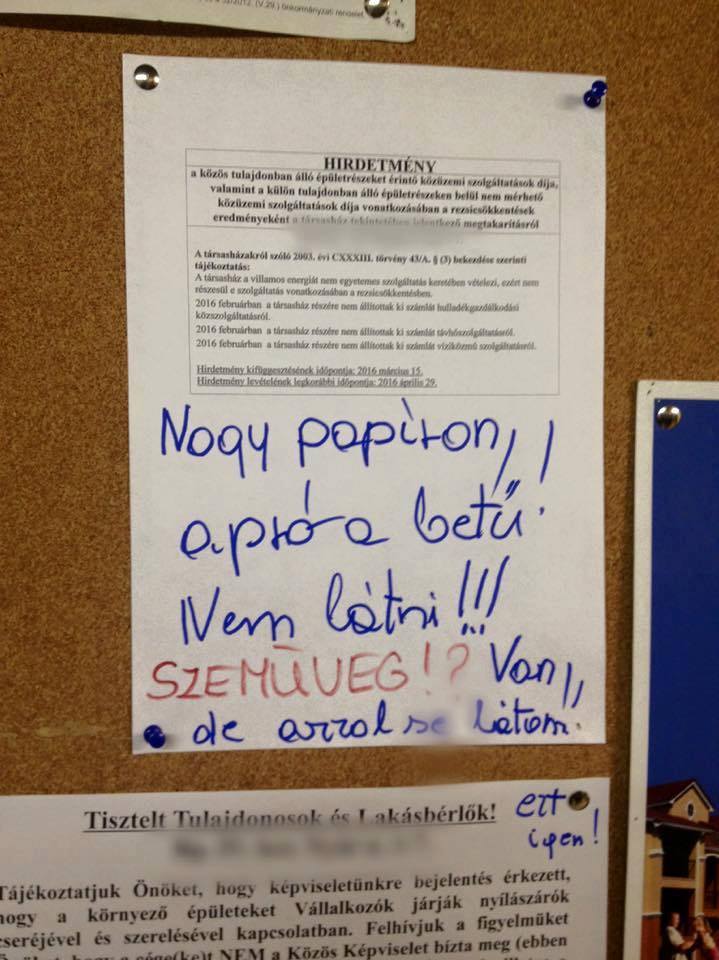 (V.29.) önkormányzati rendelet
HIRDETMÉNY
a közös tulajdonban álló épületrészeket érintő közüzemi szolgáltatások díja,
valamint a külön tulajdonban álló épületrészeken belül nem mérhető
közüzemi szolgáltatások díja vonatkozásában a rezsicsökkentések
eredményeként a társasház tekintetében jelentkező megtakarításról
A társasházakról szóló 2003. évi CXXXIII. törvény 43/A. § (3) bekezdése szerinti
tájékoztatás:
A társasház a villamos energiát nem egyetemes szolgáltatás keretében vételezi, ezért nem
részesül e szolgáltatás vonatkozásában a rezsicsökkentésben.
2016 februárban a társasház részére nem állítottak ki számlát hulladékgazdálkodási
közszolgáltatásról.
2016 februárban a társasház részére nem állítottak ki számlát távhőszolgáltatásról.
2016 februárban a társasház részére nem állítottak ki számlát víziközmű szolgáltatásról.
Hirdetmény kifüggesztésének időpontja: 2016 március 15.
Hirdetmény levételének legkorábbi időpontja: 2016 április 29.
Nagy papíron,,
apró a betű!
Nem látni!!!
SZEMÜVEG!? Van,,
de arról se látom.
Tisztelt Tulajdonosok és Lakásbérlők!
ezt
igen!
Tájékoztatjuk Önöket, hogy képviseletünkre bejelentés érkezett,
hogy a környező épületeket Vállalkozók járják nyílászárók
cseréjével és szerelésével kapcsolatban. Felhívjuk a figyelmüket
hogy a cége(ke)t NEM a Közös Képviselet bízta meg (ebben